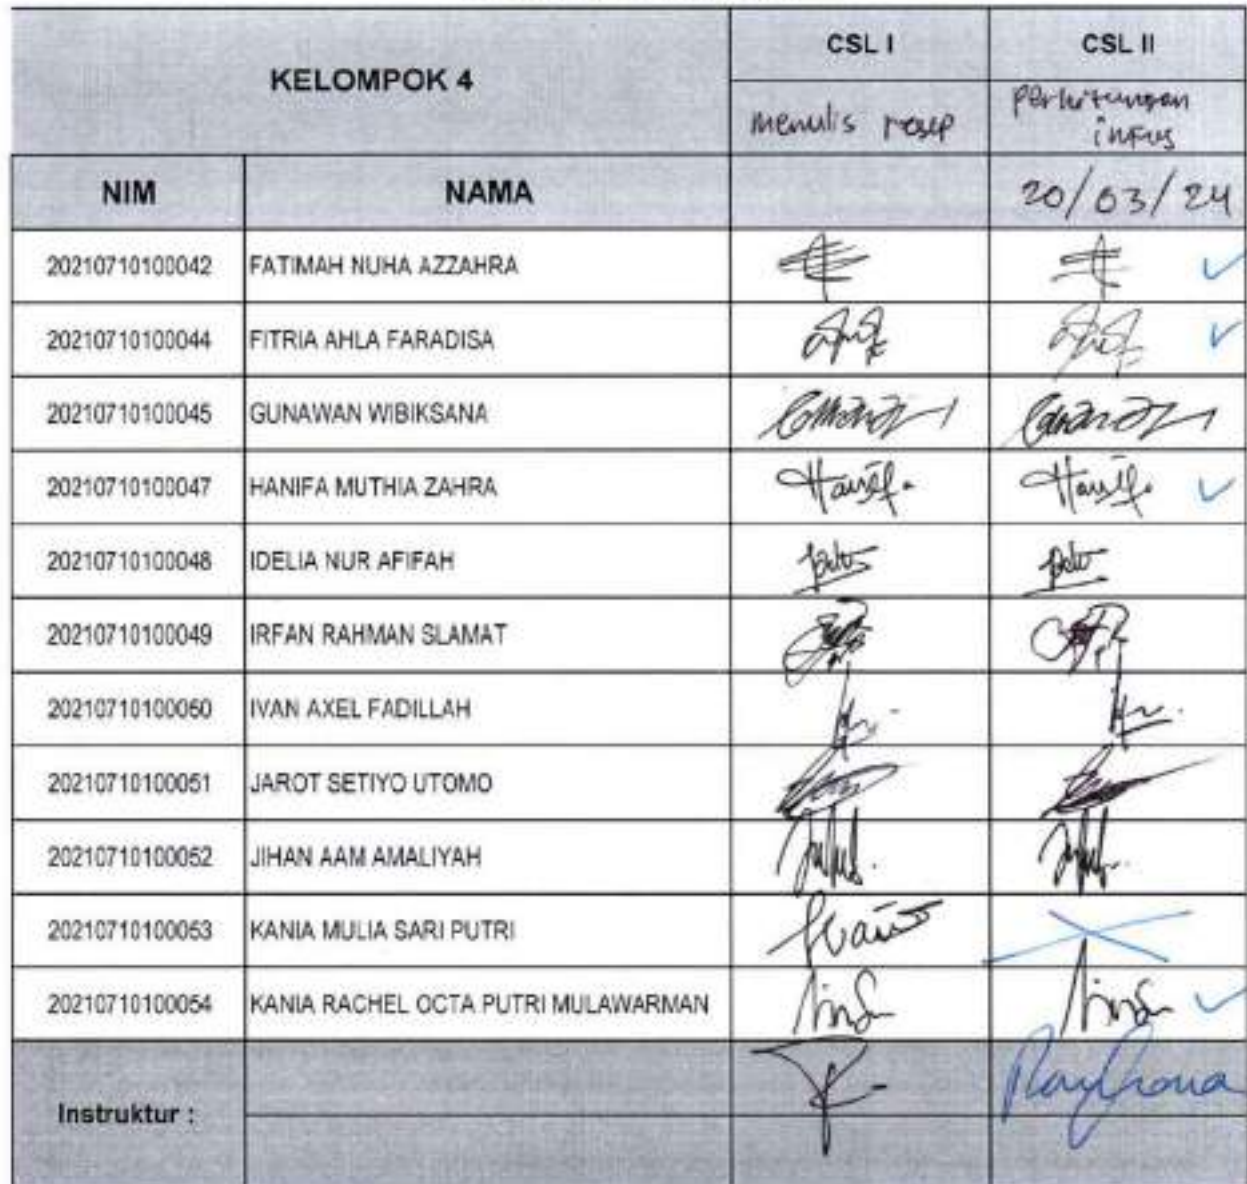 CSL I
CSL II
KELOMPOK 4
menulis resep
perhitungan
infus
NIM
NAMA
20/03/24
20210710100042 FATIMAH NUHA AZZAHRA
20210710100044 FITRIA AHLA FARADISA
20210710100045 GUNAWAN WIBIKSANA
20210710100047 HANIFA MUTHIA ZAHRA
20210710100048 IDELIA NUR AFIFAH
20210710100049 IRFAN RAHMAN SLAMAT
20210710100050 IVAN AXEL FADILLAH
20210710100051 JAROT SETIYO UTOMO
20210710100052 JIHAN AAM AMALIYAH
20210710100053 KANIA MULIA SARI PUTRI
20210710100054 KANIA RACHEL OCTA PUTRI MULAWARMAN
Instruktur :